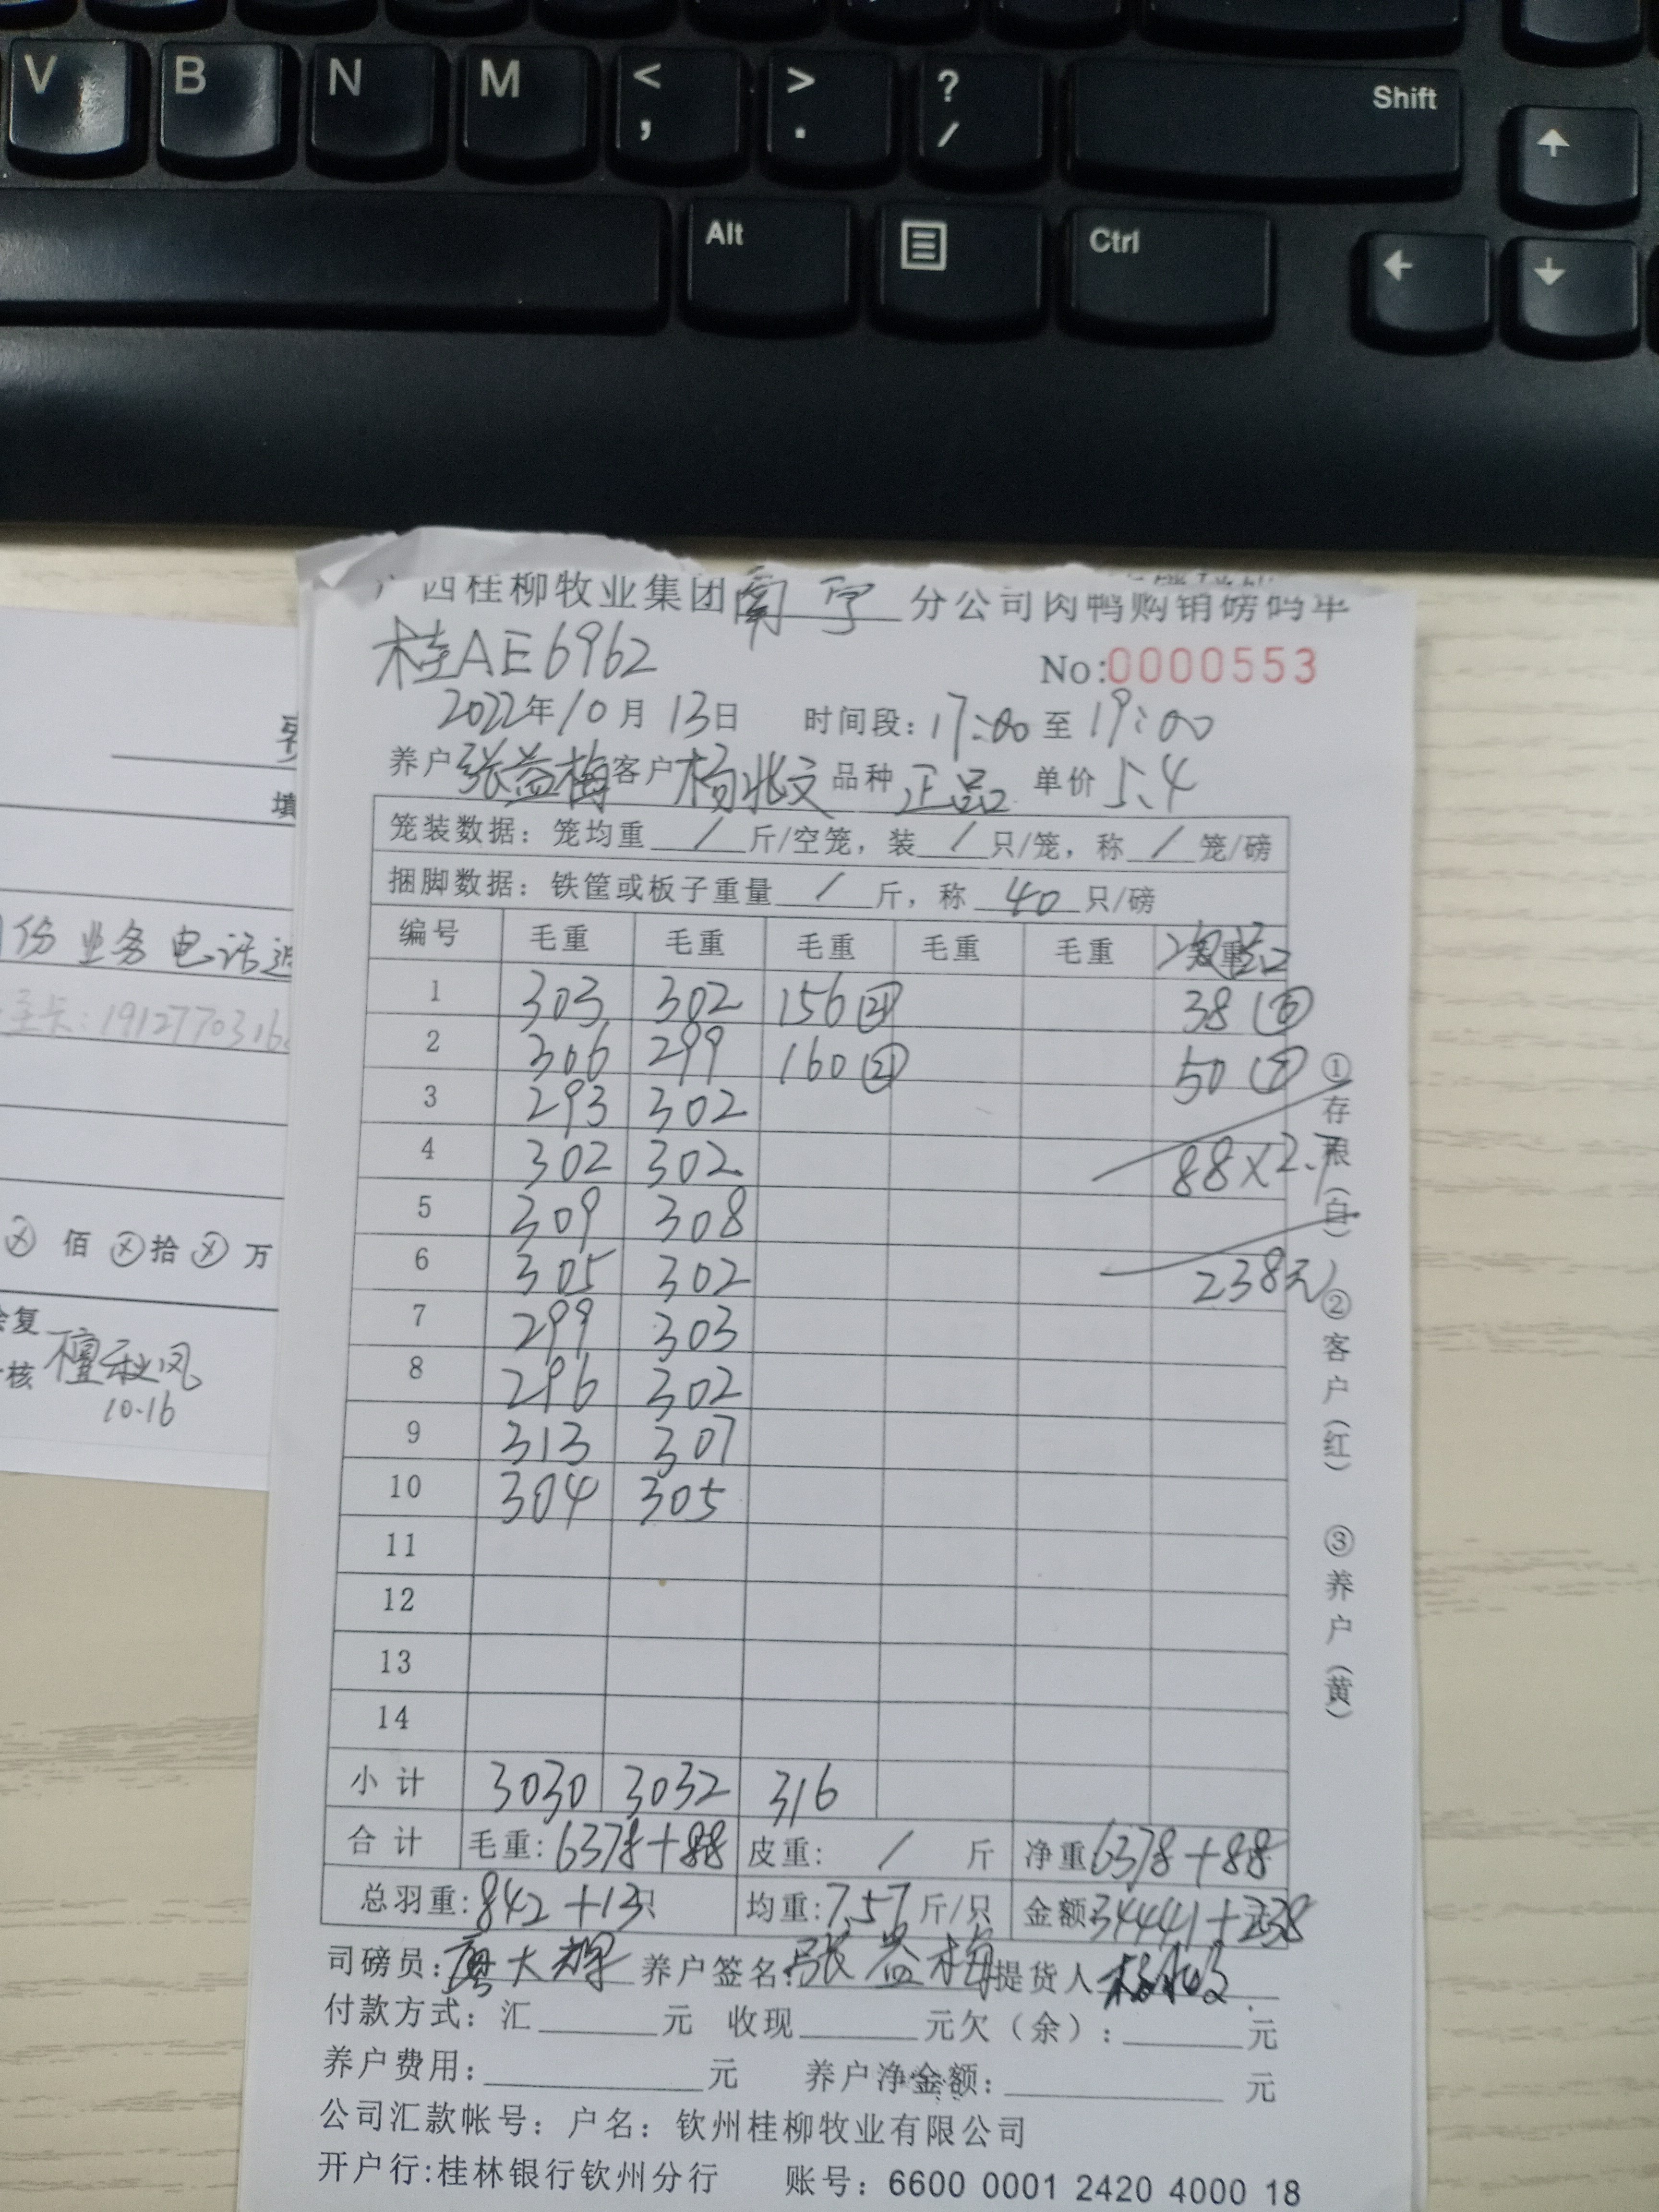 V B N M < , > . ? / Shift
Alt Ctrl
广西桂柳牧业集团南宁分公司肉鸭购销磅码单
桂AE6962
No:0000553
2022年10月13日 时间段:17:00至19:00
养户张益梅客户杨兆文品种正品单价5.4
笼装数据:笼均重/斤/空笼,装/只/笼,称/笼/磅
捆脚数据:铁筐或板子重量/斤,称40只/磅
编号 毛重 毛重 毛重 毛重 毛重
1 303 302 156 38
2 306 299 160 50
3 293 302
4 302 302 88×2.7
5 309 308
6 305 302 238元
7 299 303
8 296 302
9 313 307
10 304 305
11
12
13
14
小计 3030 3032 316
合计 毛重:6378+88 皮重:/斤 净重6378+88
总羽重:842+13只 均重:7.57斤/只 金额34441+238
司磅员:廖大辉 养户签名:张益梅提货人
付款方式:汇 元 收现 元欠(余): 元
养户费用: 元 养户净金额: 元
公司汇款帐号:户名:钦州桂柳牧业有限公司
开户行:桂林银行钦州分行 账号:6600 0001 2420 4000 18
①存根(白) ②客户(红) ③养户(黄)
填
份业务电话
卡:191277031
佰 拾 万
复
核 檀秋凤
10.16